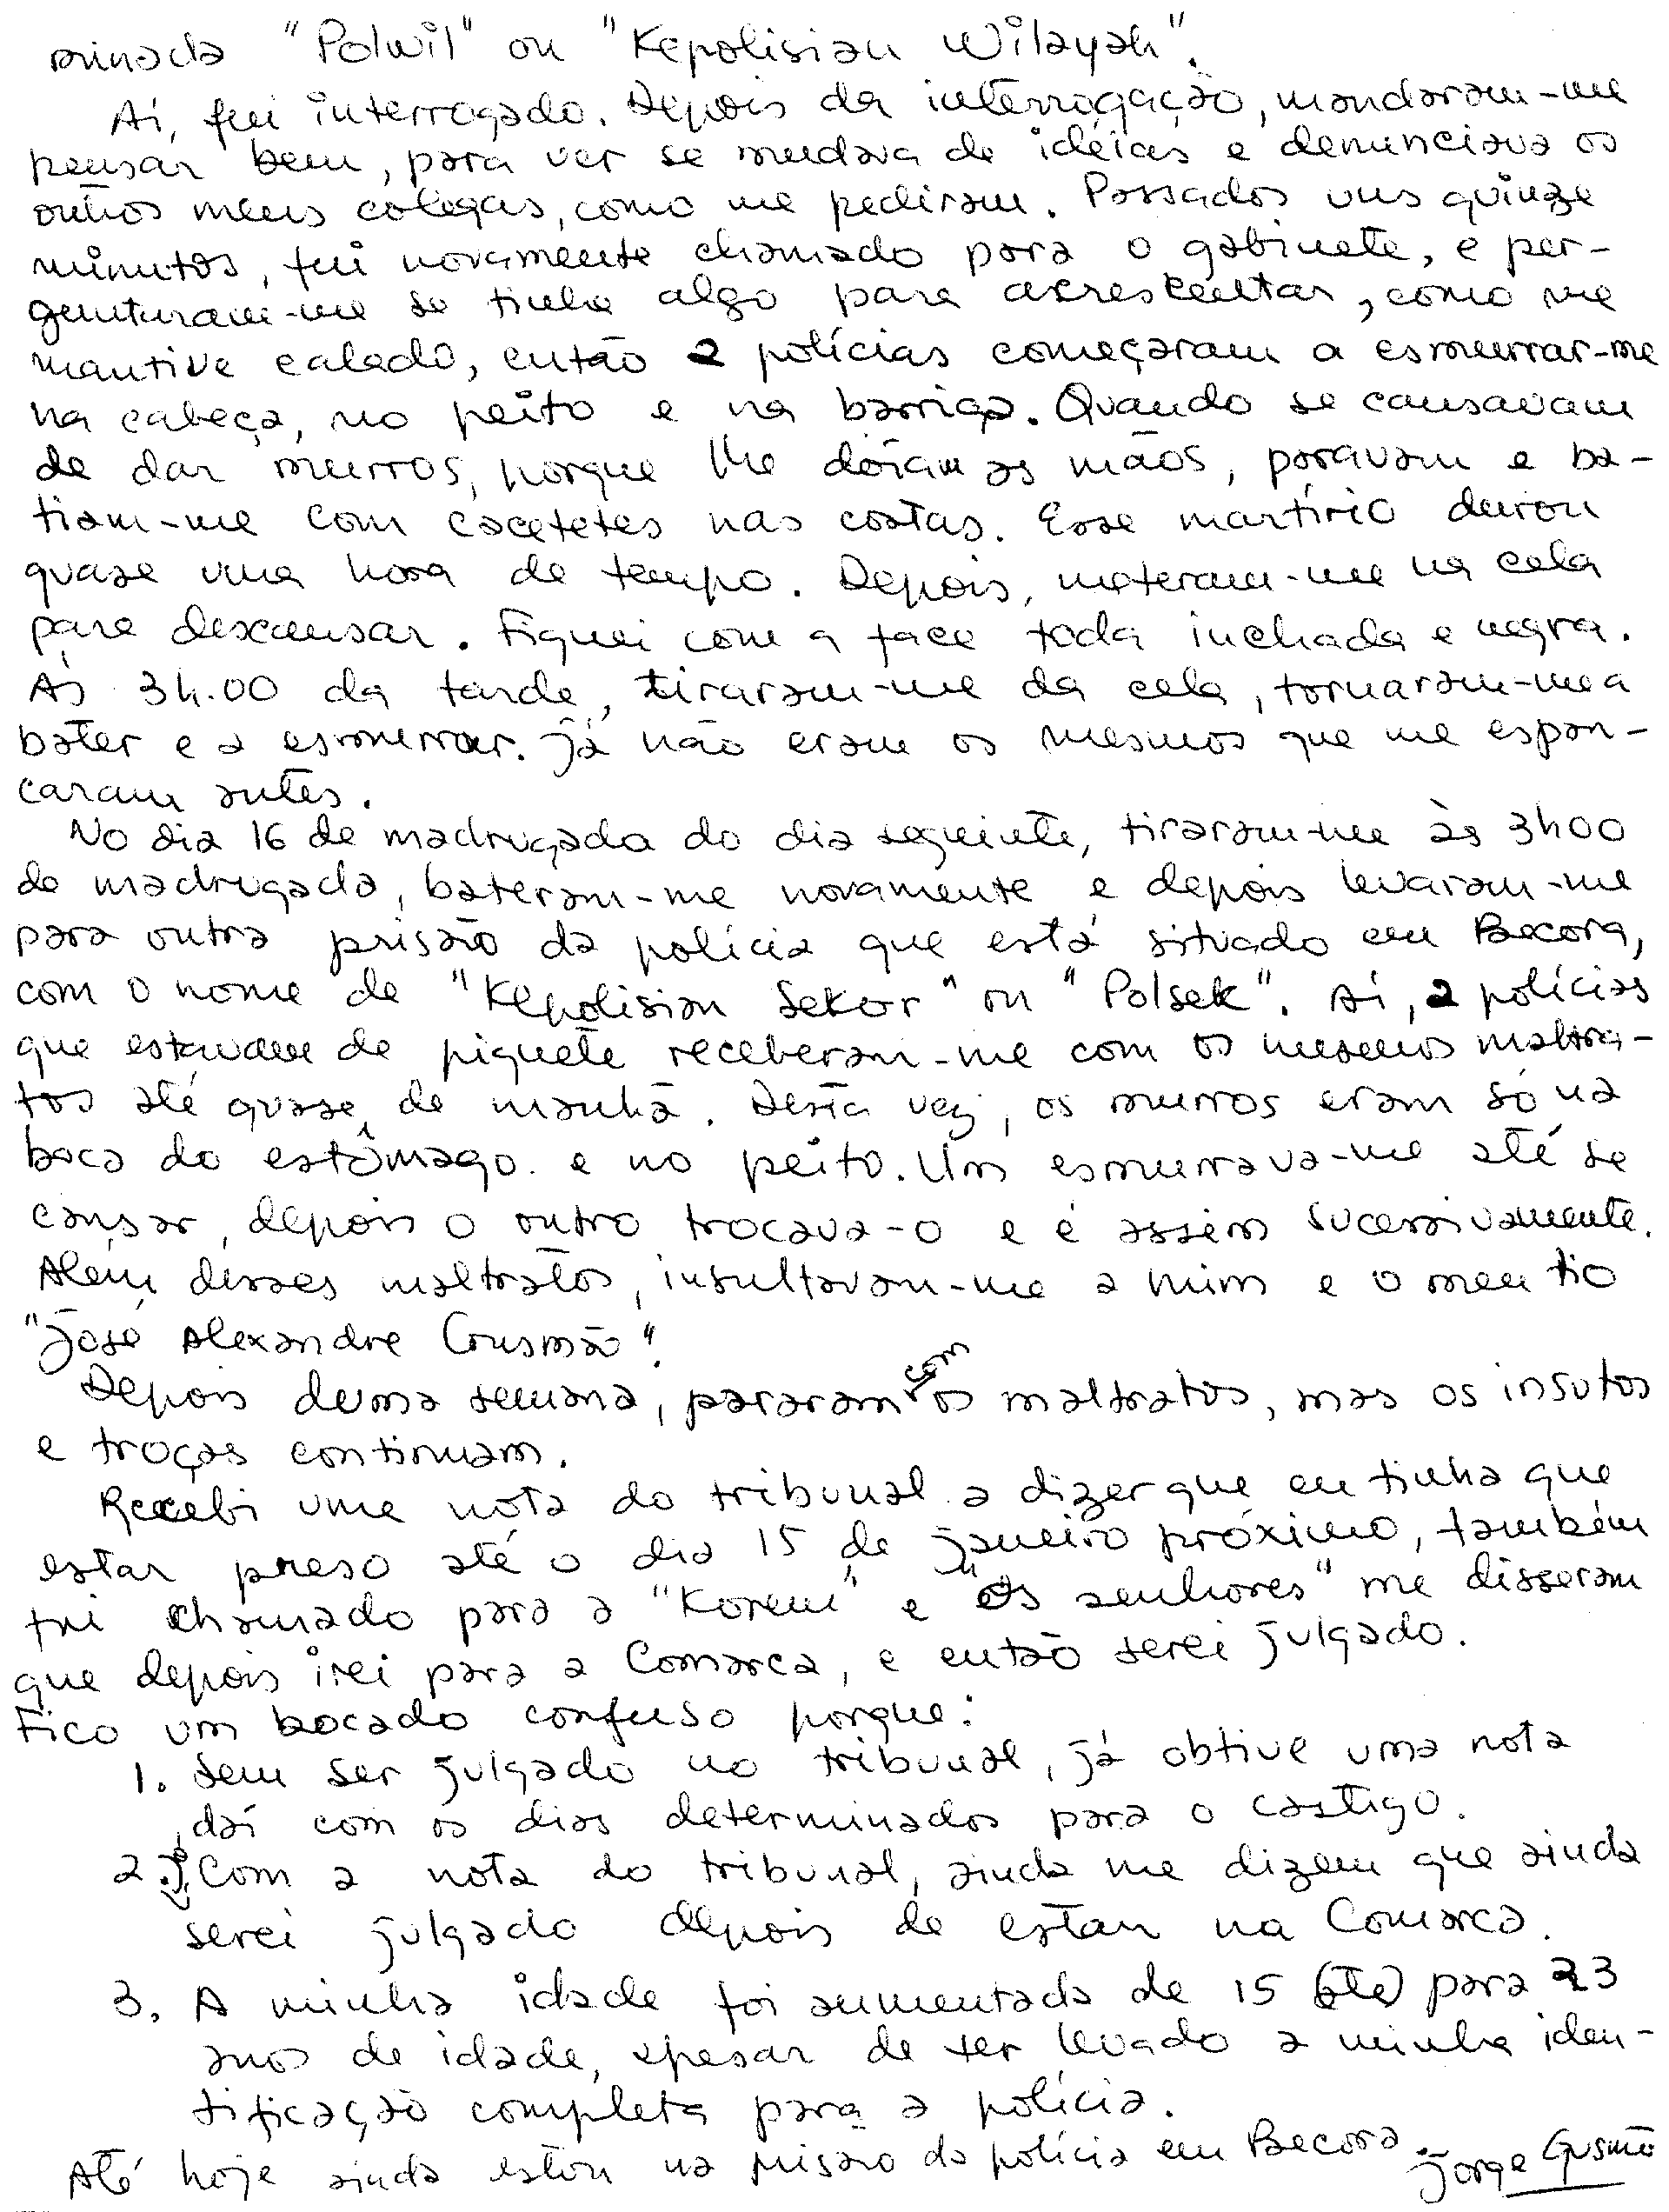 minada "Polwil" ou "Kepolisian Wilayah".
Aí, fui interrogado. Depois da interrogação, mandaram-me
pensar bem, para ver se mudava de idéias e denunciava os
outros meus colegas, como me pediram. Passados uns quinze
minutos, fui novamente chamado para o gabinete, e per-
gunturam-me se tinha algo para acrescentar, como me
mantive calado, então 2 polícias começaram a esmurrar-me
na cabeça, no peito e na barriga. Quando se cansavam
de dar murros, porque lhe doíam as mãos, paravam e ba-
tiam-me com cacetetes nas costas. Esse martírio durou
quase uma hora de tempo. Depois, meteram-me na cela
para descansar. Fiquei com a face toda inchada e negra.
Às 3h.00 da tarde, tiraram-me da cela, tornaram-me a
bater e a esmurrar. Já não eram os mesmos que me espan-
caram antes.
No dia 16 de madrugada do dia seguinte, tiraram-me às 3h00
de madrugada, bateram-me novamente e depois levaram-me
para outra prisão da polícia que está situado em Becora,
com o nome de "Kepolisian Sektor" ou "Polsek". Aí, 2 polícias
que estavam de piquete receberam-me com os mesmos maltra-
tos até quase de manhã. Desta vez, os murros eram só na
boca do estômago e no peito. Um esmurrava-me até se
cansar, depois o outro trocava-o e é assim sucessivamente.
Além desses maltratos, insultavam-me a mim e o meu tio
"José Alexandre Gusmão".
Depois duma semana, pararam com os maltratos, mas os insutos
e troças continuam.
Recebi uma nota do tribunal a dizer que eu tinha que
estar preso até o dia 15 de janeiro próximo, também
fui chamado para a "Korem" e "os senhores" me disseram
que depois irei para a Comarca, e então serei julgado.
Fico um bocado confuso porque:
1. Sem ser julgado no tribunal, já obtive uma nota
daí com os dias determinados para o castigo.
2. Com a nota do tribunal, ainda me dizem que ainda
serei julgado depois de estar na Comarca.
3. A minha idade foi aumentada de 15 (até) para 23
anos de idade, apesar de ter levado a minha iden-
tificação completa para a polícia.
Até hoje ainda estou na prisão da polícia em Becora.
Jorge Gusmão